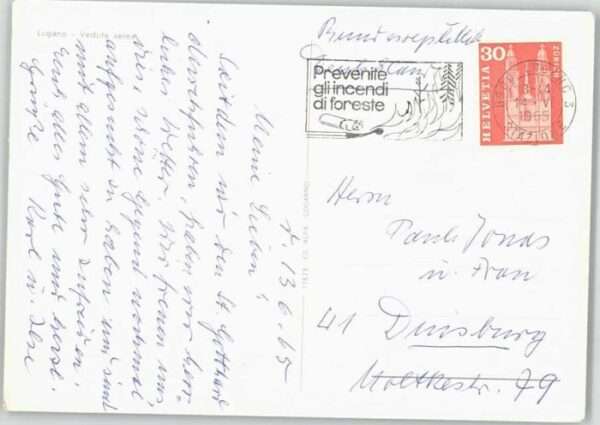 Lugano - Veduta aerea
d. 13.6.65
Meine Lieben!
Seitdem wir den St. Gotthard
durchfuhren, haben wir herr-
liches Wetter. Wir freuen uns
diese schöne Gegend nochmal
aufgesucht zu haben und sind
mit allem sehr zufrieden.
Euch alles Gute und herzl.
Grüße Karl u. Ilse
Bundesrepublik
Deutschland
Prevenite
gli incendi
di foreste
30
HELVETIA
ZÜRICH
1965
Herrn
Paul Jonas
u. Frau
41 Duisburg
Moltkestr. 79